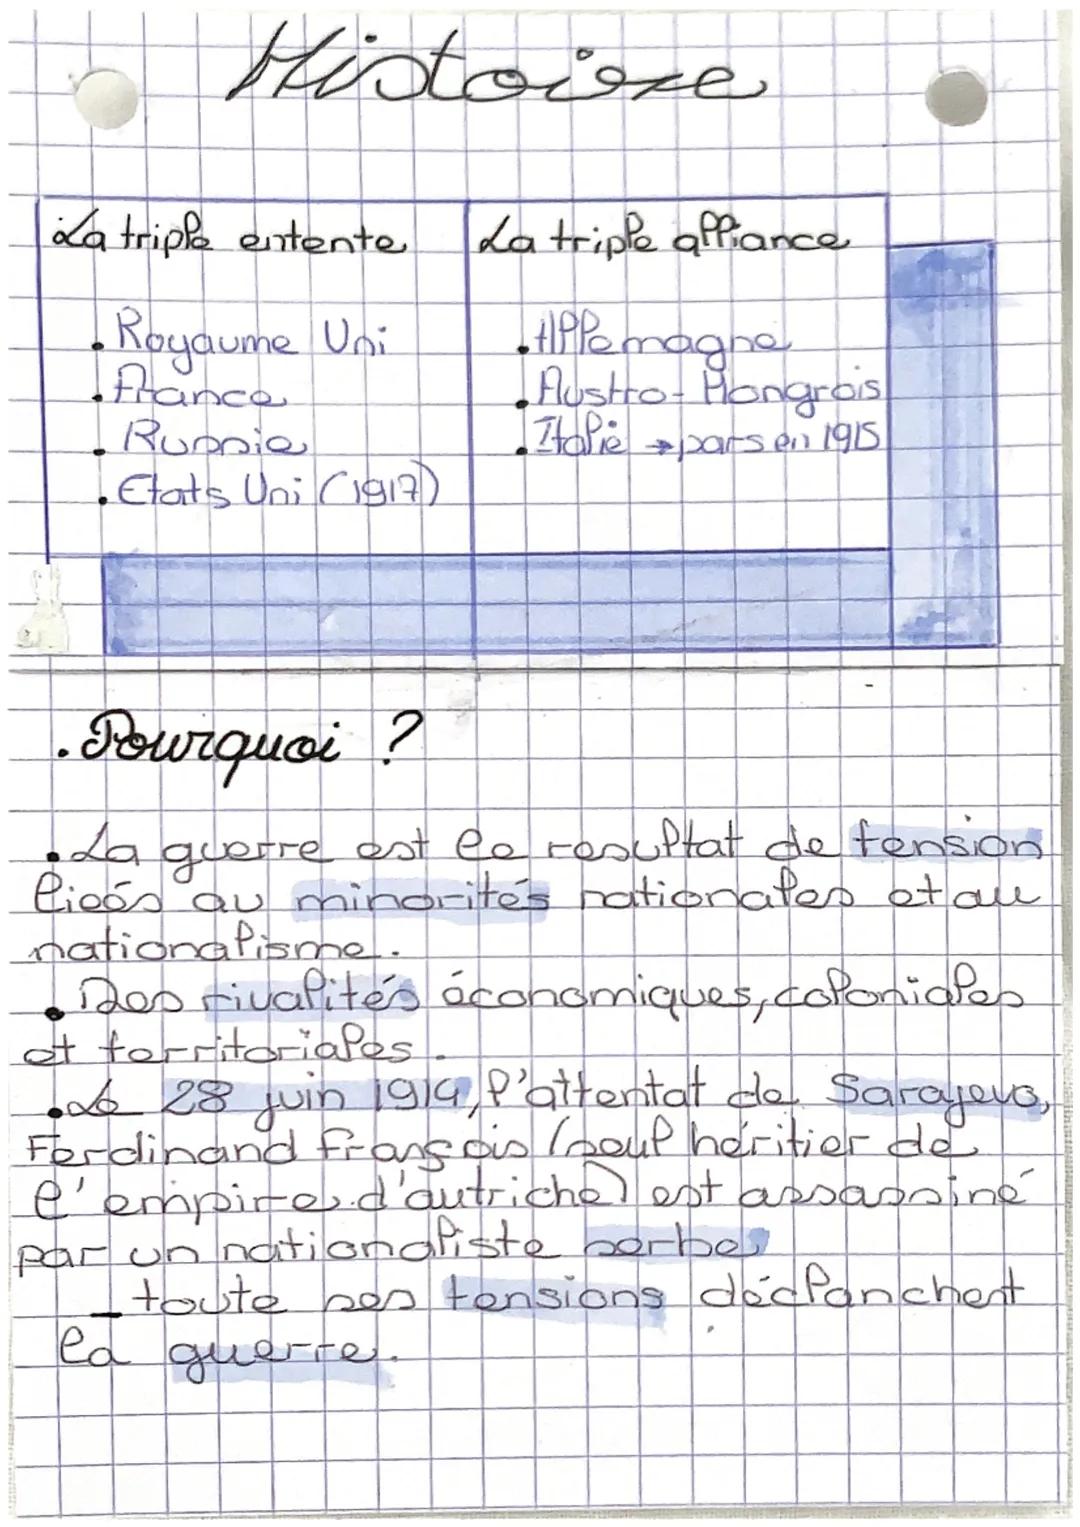 Histoire
La triple entente
La triple alliance
. Royaume Uni
. France
. Russie
. Etats Uni (1917)
. Allemagne
. Austro-Hongrois
. Italie → pars en 1915
. Pourquoi ?
. La guerre est le resultat de tension
lieés au minorités nationales et au
nationalisme.
. Des rivalités économiques, coloniales
et territoriales.
. Le 28 juin 1914, l'attentat de Sarajevo,
Ferdinand François (seul héritier de
l'empire d'autriche) est assassiné
par un nationaliste serbe
_ toute ses tensions déclanchent
la guerre.